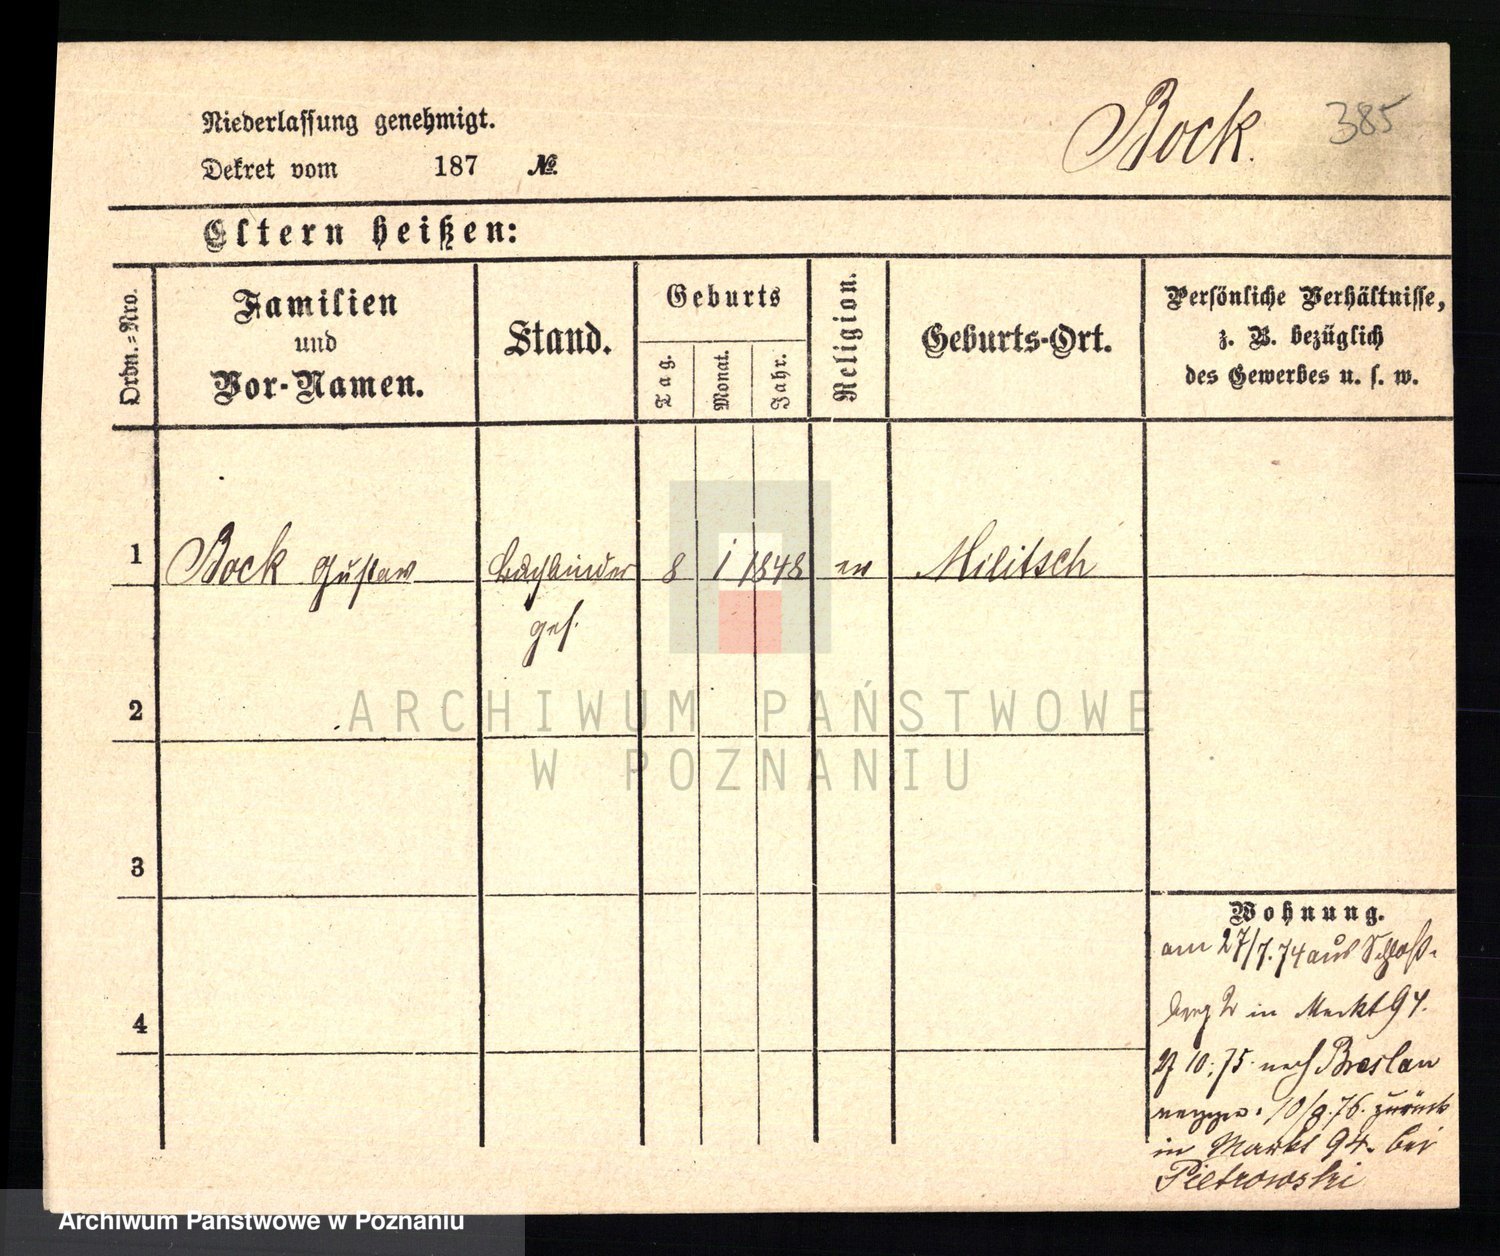 Niederlassung genehmigt.
Bock.
385
Dekret vom 187 №
Eltern heißen:
Ordn.-Nro.
Familien
und
Vor-Namen.
Stand.
Geburts
Tag.
Monat.
Jahr.
Religion.
Geburts-Ort.
Persönliche Verhältnisse,
z. B. bezüglich
des Gewerbes u. s. w.
1 Bock Gustav Buchbinder 8 1 1848 ev Militsch
ges.
2
3
4
Wohnung.
am 27/7. 74 aus Schloß-
berg 2 in Markt 94.
10. 75 nach Breslau
10/9. 76. zurück
in Markt 94. bei
Pietrowski
ARCHIWUM PAŃSTWOWE
W POZNANIU
Archiwum Państwowe w Poznaniu